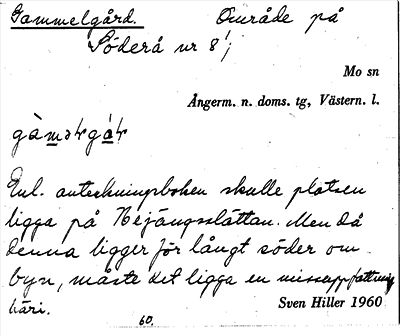 Gammelgård. Område på
Söderå nr 8¹;
Mo sn
Ångerm. n. doms. tg, Västern. l.
Enl. anteckningsboken skulle platsen
ligga på Rejängsslåttan. Men då
denna ligger för långt söder om
byn, måste det ligga en missuppfattning
häri.
Sven Hiller 1960
60.